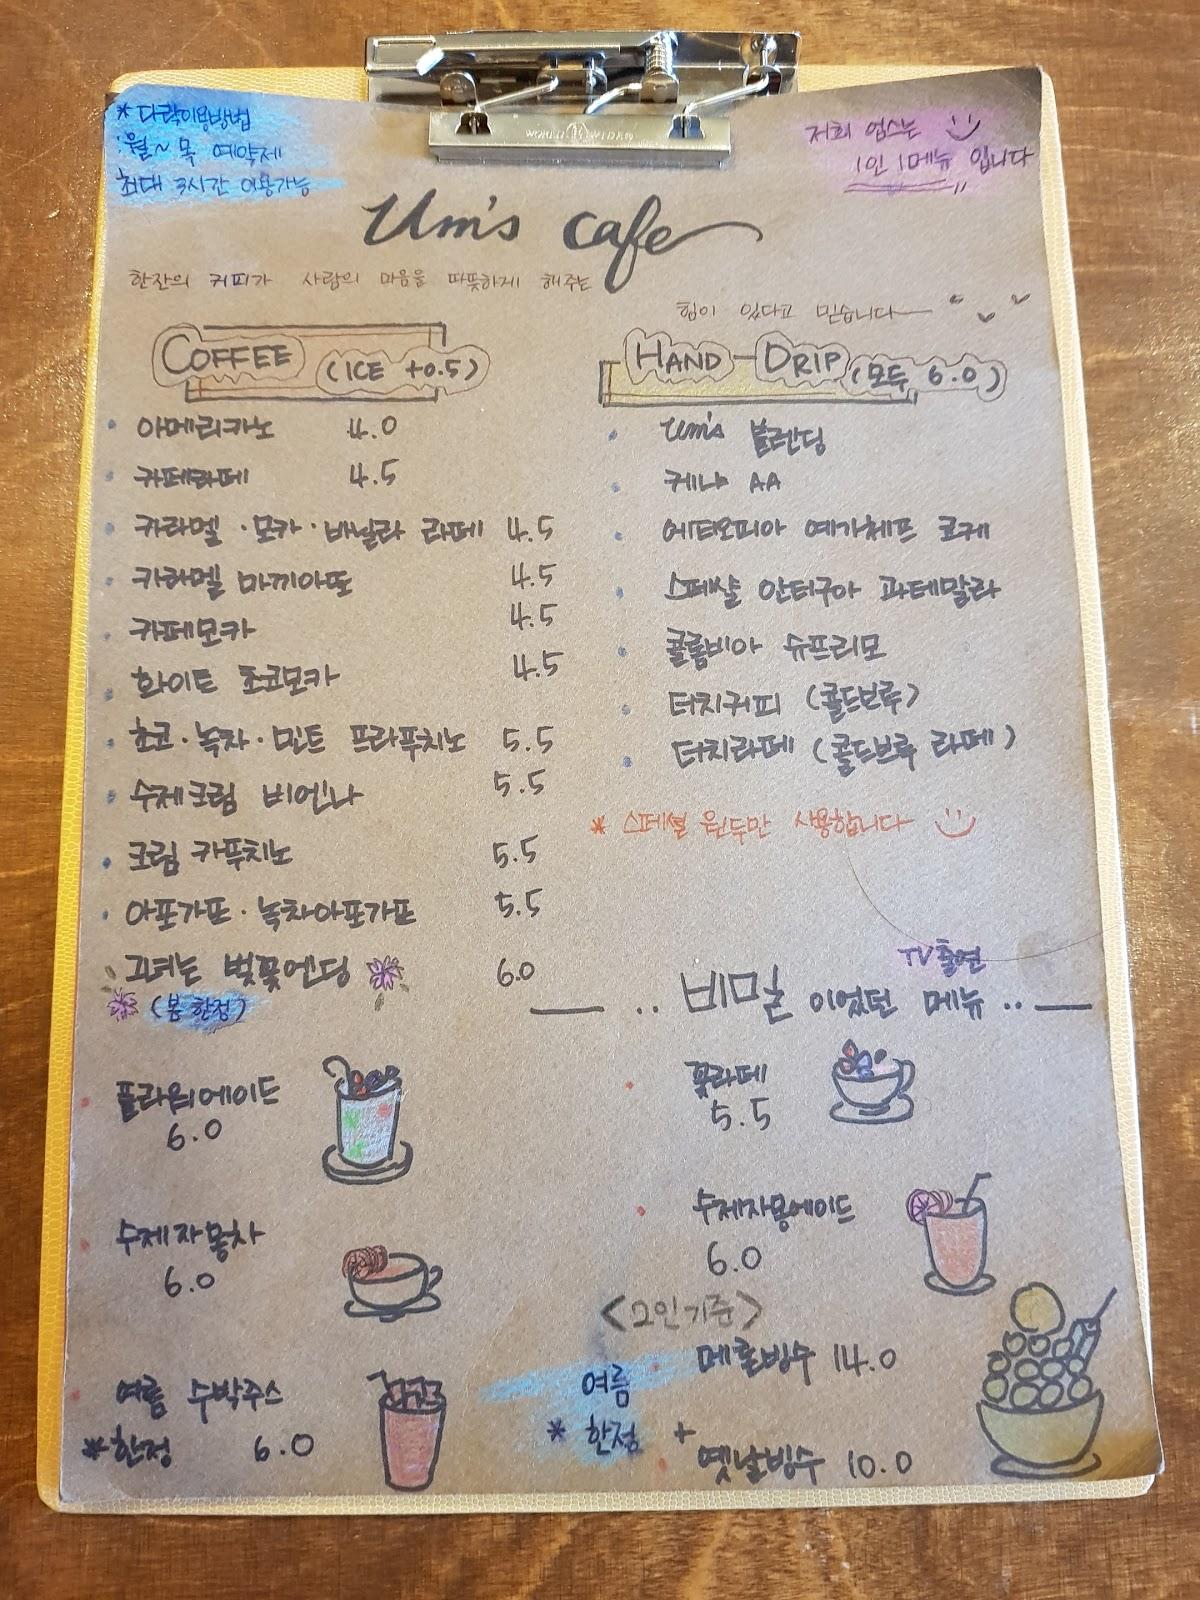 * 다락이용방법
: 월~목 예약제
최대 3시간 이용가능
저희 엄스는
1인 1메뉴 입니다
Um's cafe
한잔의 커피가 사람의 마음을 따뜻하게 해주는
힘이 있다고 믿습니다
COFFEE (ICE +0.5)
아메리카노 4.0
카페라떼 4.5
카라멜·모카·바닐라 라떼 4.5
카라멜 마끼아또 4.5
카페모카 4.5
화이트 초코모카 4.5
초코·녹차·민트 프라푸치노 5.5
수제크림 비엔나 5.5
크림 카푸치노 5.5
아포가또·녹차아포가또 5.5
그녀는 벚꽃엔딩 6.0
(봄 한정)
HAND-DRIP (모두 6.0)
Um's 블렌딩
케냐 AA
에티오피아 예가체프 코케
스페샬 안티구아 과테말라
콜롬비아 슈프리모
더치커피 (콜드브루)
더치라떼 (콜드브루 라떼)
* 스페셜 원두만 사용합니다
TV출연
.. 비밀 이었던 메뉴 ..
플라워에이드
6.0
꽃라떼
5.5
수제자몽차
6.0
수제자몽에이드
6.0
여름 수박주스
*한정 6.0
<2인기준>
여름
* 한정
메론빙수 14.0
+
옛날빙수 10.0